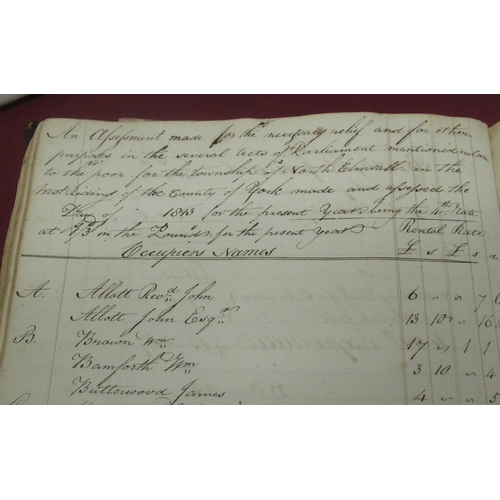 An Assessment made for the necessary relief and for other
purposes in the several Acts of Parliament mentioned relating
to the poor for the township of North Elmsall in the
West riding of the County of York made and assessed the
Day of 1813 for the present Year, being the 4th Rate
at 1/3d in the Pound for the present Year
Rental Rate
Occupiers Names £ s £ s d
A. Allott Revd. John 6 " " 7 6
Allott John Esqr. 13 10 " 16
B. Brown Wm. 17 " 1 1
Bamforth Wm 3 10 " 4
Butterwood James 4 " " 5